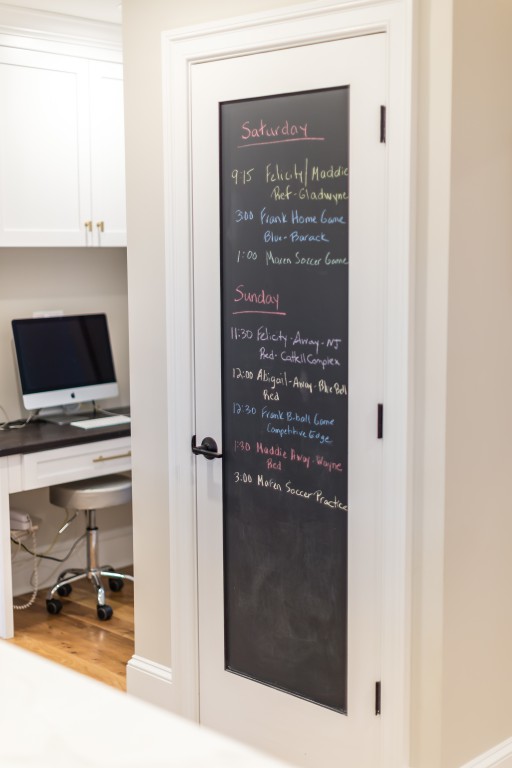 Saturday
9:15 Felicity/Maddie
Ref-Gladwyne
3:00 Frank Home Game
Blue-Barack
1:00 Maren Soccer Game
Sunday
11:30 Felicity-Away-NJ
Red-Cattell Complex
12:00 Abigail-Away-Blue Bell
Red
12:30 Frank B.ball Game
Competitive Edge
1:30 Maddie Away-Wayne
Red
3:00 Maren Soccer Practice